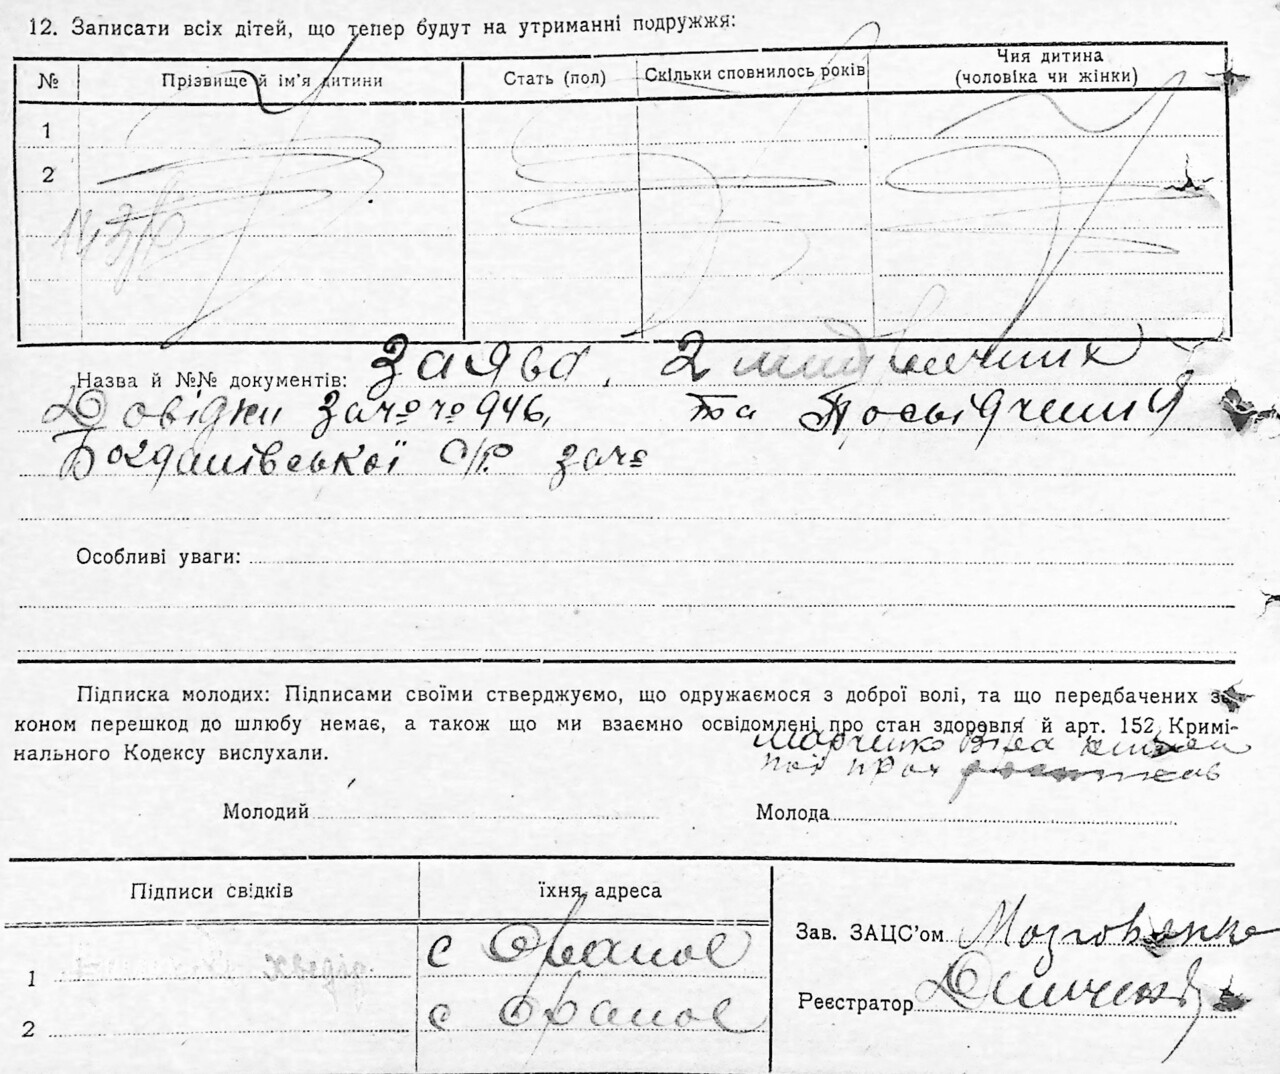 12. Записати всіх дітей, що тепер будут на утриманні подружжя:
№ Прізвище й ім'я дитини Стать (пол) Скільки сповнилось років Чия дитина (чоловіка чи жінки)
1
2
Назва й №№ документів: Заява, 2
Довідки за ч 946, та Посвідчення
Богданівської С/Р. за ч
Особливі уваги:
Підписка молодих: Підписами своїми стверджуємо, що одружаємося з доброї волі, та що передбачених за-
коном перешкод до шлюбу немає, а також що ми взаємно освідомлені про стан здоровля й арт. 152 Кримі-
нального Кодексу вислухали.
Марченко Віра
Молодий Молода
Підписи свідків їхня адреса
Зав. ЗАЦС'ом
1 с Ораное
Реєстратор Демченко
2 с Ораное